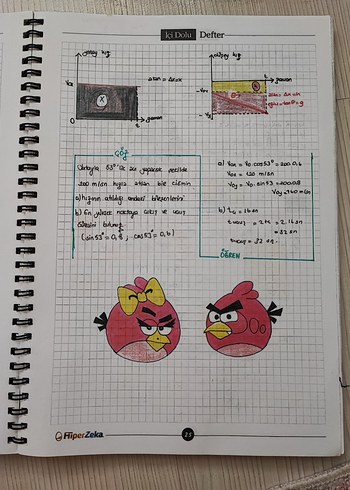 İçi Dolu Defter
düşey hız
Vox
alan = Δx = x
0
t
zaman
zaman
-Voy
alan = Δx = h
eğim = tanθ = g
-Vy
ÇÖZ
Yatayla 53° lik açı yapacak şekilde
200 m/sn hızla atılan bir cismin
a) hızının atıldığı andaki bileşenlerini
b) En yüksek noktaya çıkış ve uçuş
süresini bulunuz.
(sin53° = 0,8 ; cos53° = 0,6)
a) Vox = V0.cos53° = 200.0,6
Vox = 120 m/sn
Voy = V0.sin53 = 200.0,8
Voy = 160 m/sn
b) tç = 16 sn
tuçuş = 2tç = 2.16 sn
= 32 sn
tuçuş = 32 sn
ÖĞREN
HiperZeka
25